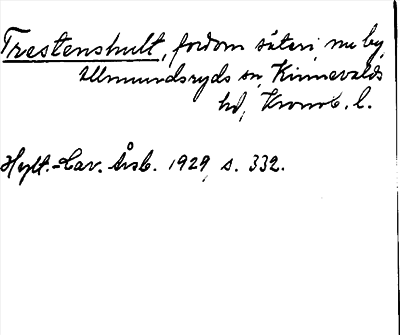 Trestenshult, fordom säteri, nu by,
Ullmundsryds sn, Kinnevalds
hd, Kronob. l.
Hylt.-Cav. Årsb. 1929, s. 332.